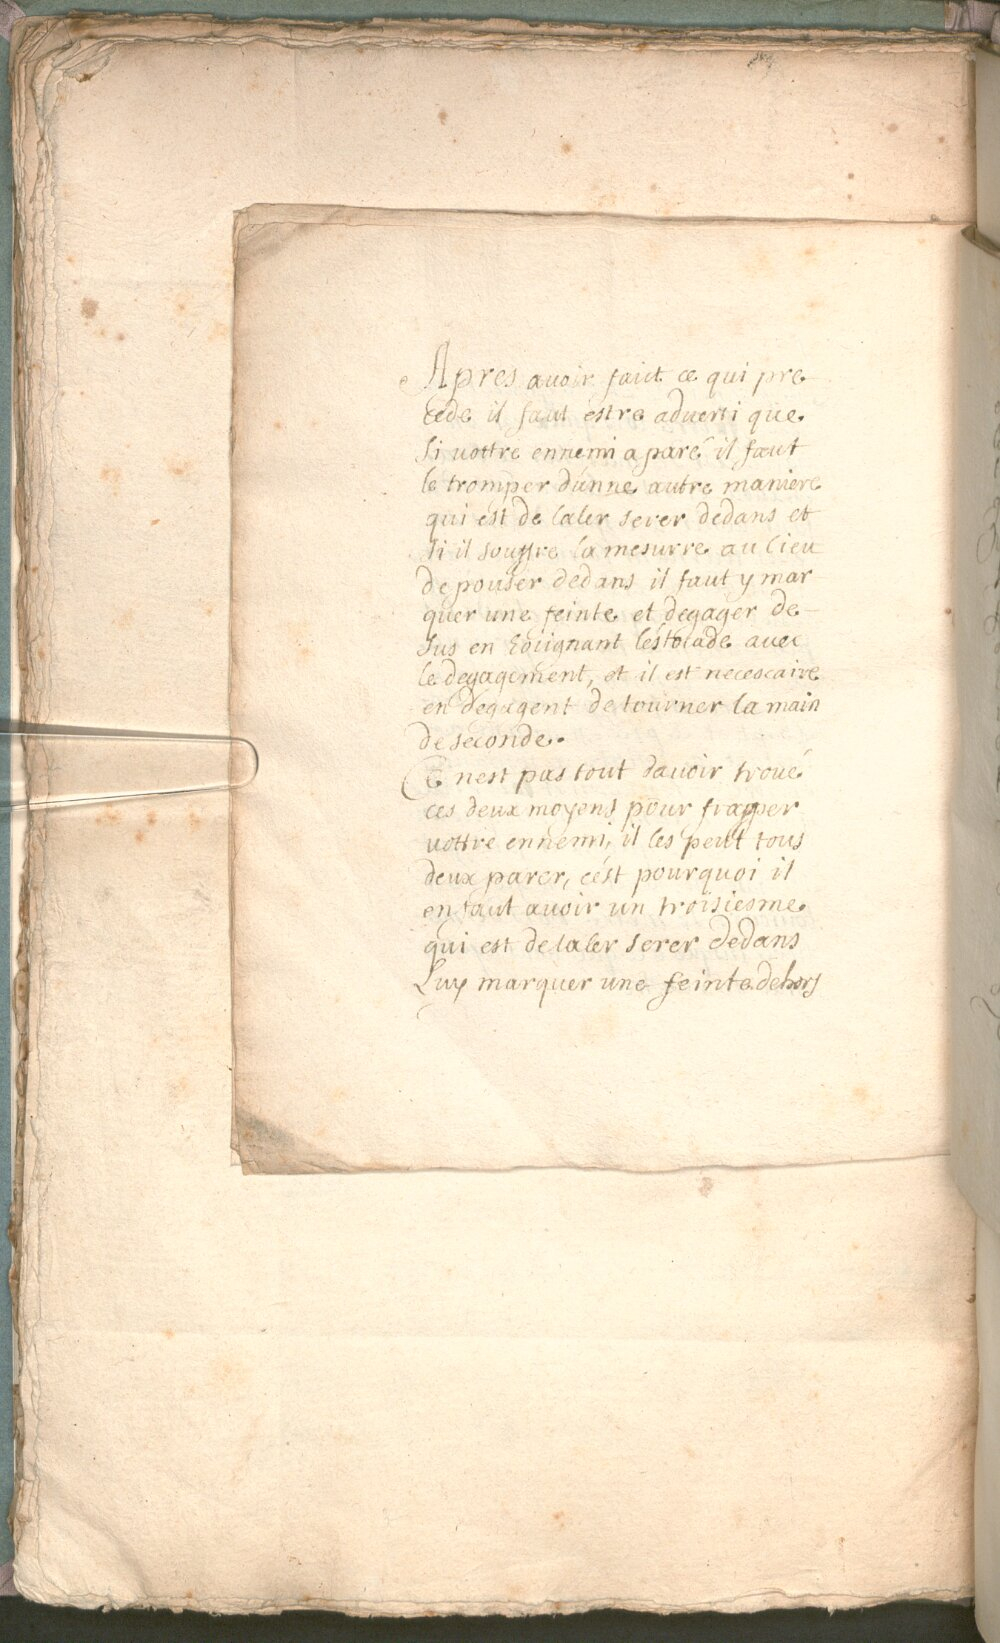 Apres avoir faict ce qui pre
cede il faut estre adverti que
si vottre ennemi a paré il faut
le tromper d'unne autre maniere
qui est de laler serer dedans et
si il souffre la mesurre au lieu
de pouser dedans il faut y mar
quer une feinte et degager de-
sus en lestocade avec
le degagement, et il est necescaire
en degagent de tourner la main
de seconde.
Ce nest pas tout davoir troué
ces deux moyens pour frapper
vottre ennemi, il les peut tous
deux parer, cést pourquoi il
en faut avoir un troisiesme
qui est de laler serer dedans
Luy marquer une feinte dehors